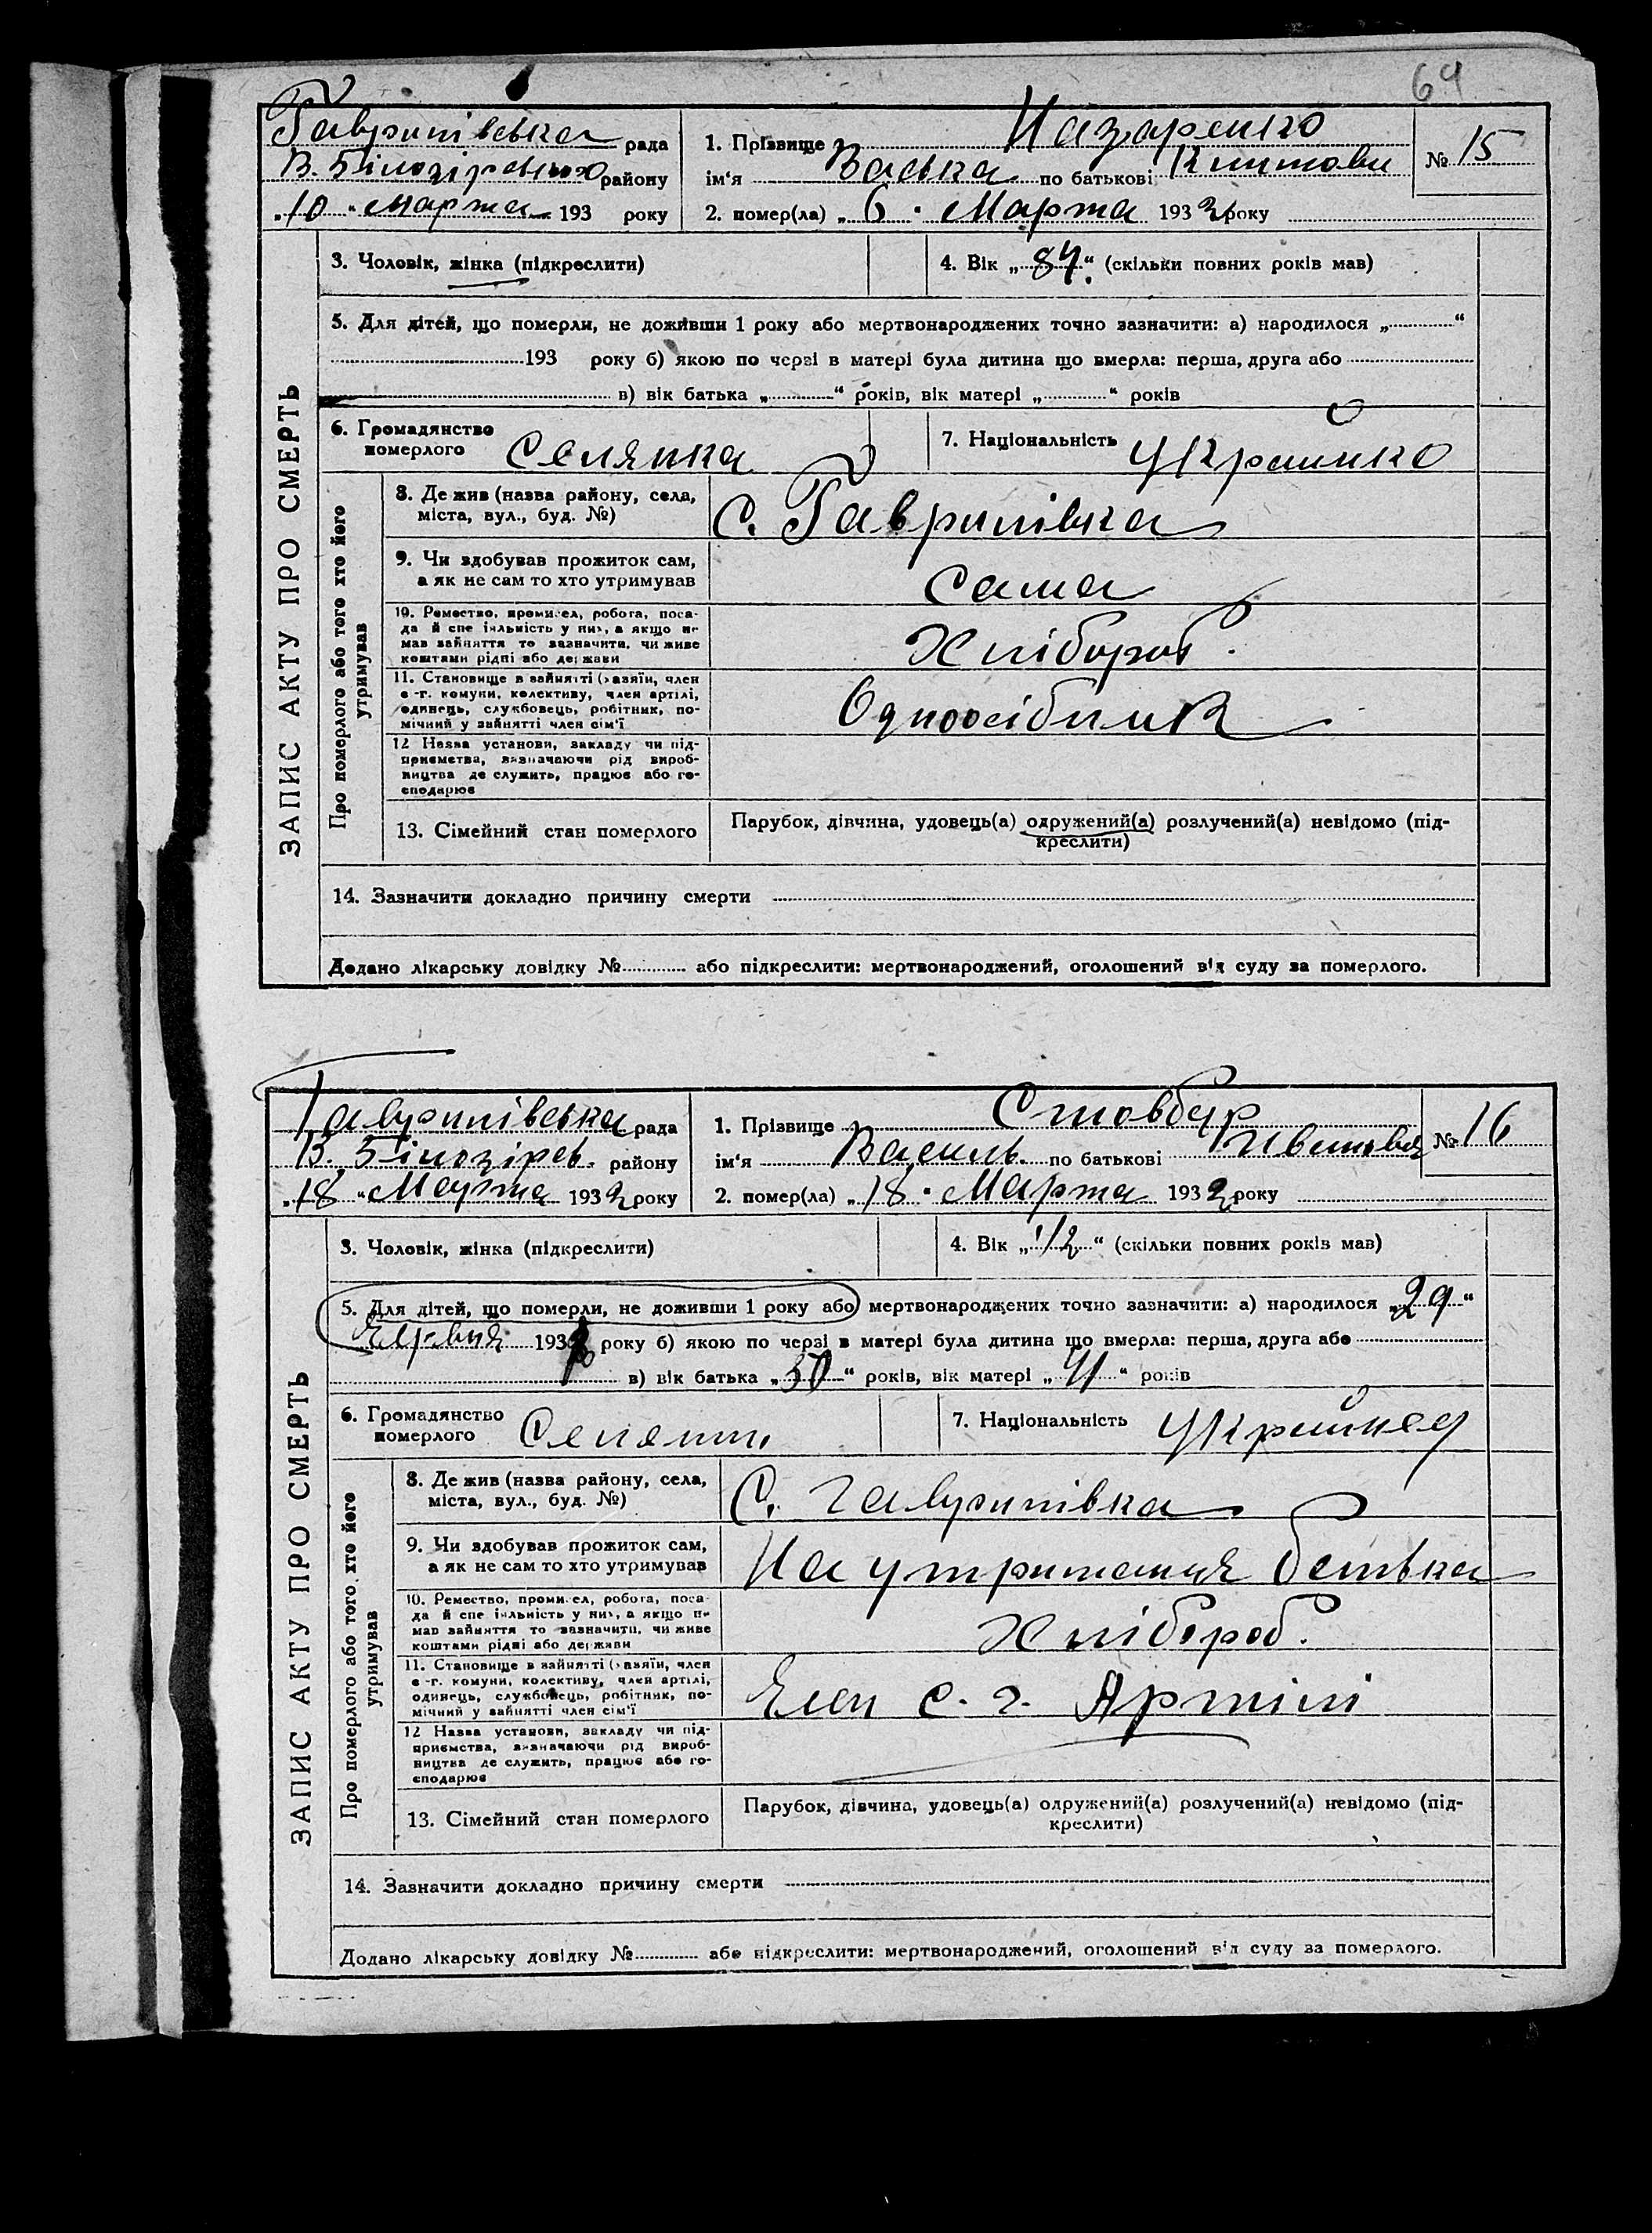 64
Гаврилівська рада
В. Білозірсьько району
„10“ Марта 193 року
1. Прізвище Назаренко
ім'я Васька по батькові
№ 15
2. помер(ла) „6“ Марта 1932 року
ЗАПИС АКТУ ПРО СМЕРТЬ
3. Чоловік, жінка (підкреслити)
4. Вік „84“ (скільки повних років мав)
5. Для дітей, що померли, не доживши 1 року або мертвонароджених точно зазначити: а) народилося „ “
193 року б) якою по черзі в матері була дитина що вмерла: перша, друга або
в) вік батька „ “ років, вік матері „ “ років
6. Громадянство померлого Селянка
7. Національність Українко
Про померлого або того хто його утримував
8. Де жив (назва району, села,
міста, вул., буд. №)
С. Гаврилівка
9. Чи здобував прожиток сам,
а як не сам то хто утримував
Сама
10. Ремество, промисел, робота, поса-
да й спеціяльність у них, а якщо не
мав зайняття то зазначити, чи живе
коштами рідні або держави
Хлібороб.
11. Становище в зайнятті (хазяїн, член
с.-г. комуни, колективу, член артілі,
одинець, службовець, робітник, по-
мічний у зайнятті член сім'ї
Одноосібник
12 Назва установи, закладу чи під-
приємства, зазначаючи рід вироб-
ництва де служить, працює або го-
сподарює
13. Сімейний стан померлого
Парубок, дівчина, удовець(а) одружений(а) розлучений(а) невідомо (під-
креслити)
14. Зазначити докладно причину смерти
Додано лікарську довідку № або підкреслити: мертвонароджений, оголошений від суду за померлого.
Гаврилівська рада
В. Білозірсь. району
„18“ Марта 1932 року
1. Прізвище Стовбир
ім'я Василь. по батькові
№ 16
2. помер(ла) „18“ Марта 1932 року
ЗАПИС АКТУ ПРО СМЕРТЬ
3. Чоловік, жінка (підкреслити)
4. Вік „1/2“ (скільки повних років мав)
5. Для дітей, що померли, не доживши 1 року або мертвонароджених точно зазначити: а) народилося „29“
193 року б) якою по черзі в матері була дитина що вмерла: перша, друга або
в) вік батька „ “ років, вік матері „41“ років
6. Громадянство померлого Селянин
7. Національність
Про померлого або того хто його утримував
8. Де жив (назва району, села,
міста, вул., буд. №)
С. Гаврилівка
9. Чи здобував прожиток сам,
а як не сам то хто утримував
На утримання батька
10. Ремество, промисел, робота, поса-
да й спеціяльність у них, а якщо не
мав зайняття то зазначити, чи живе
коштами рідні або держави
Хлібороб.
11. Становище в зайнятті (хазяїн, член
с.-г. комуни, колективу, член артілі,
одинець, службовець, робітник, по-
мічний у зайнятті член сім'ї
Член с. г. Артілі
12 Назва установи, закладу чи під-
приємства, зазначаючи рід вироб-
ництва де служить, працює або го-
сподарює
13. Сімейний стан померлого
Парубок, дівчина, удовець(а) одружений(а) розлучений(а) невідомо (під-
креслити)
14. Зазначити докладно причину смерти
Додано лікарську довідку № або підкреслити: мертвонароджений, оголошений від суду за померлого.